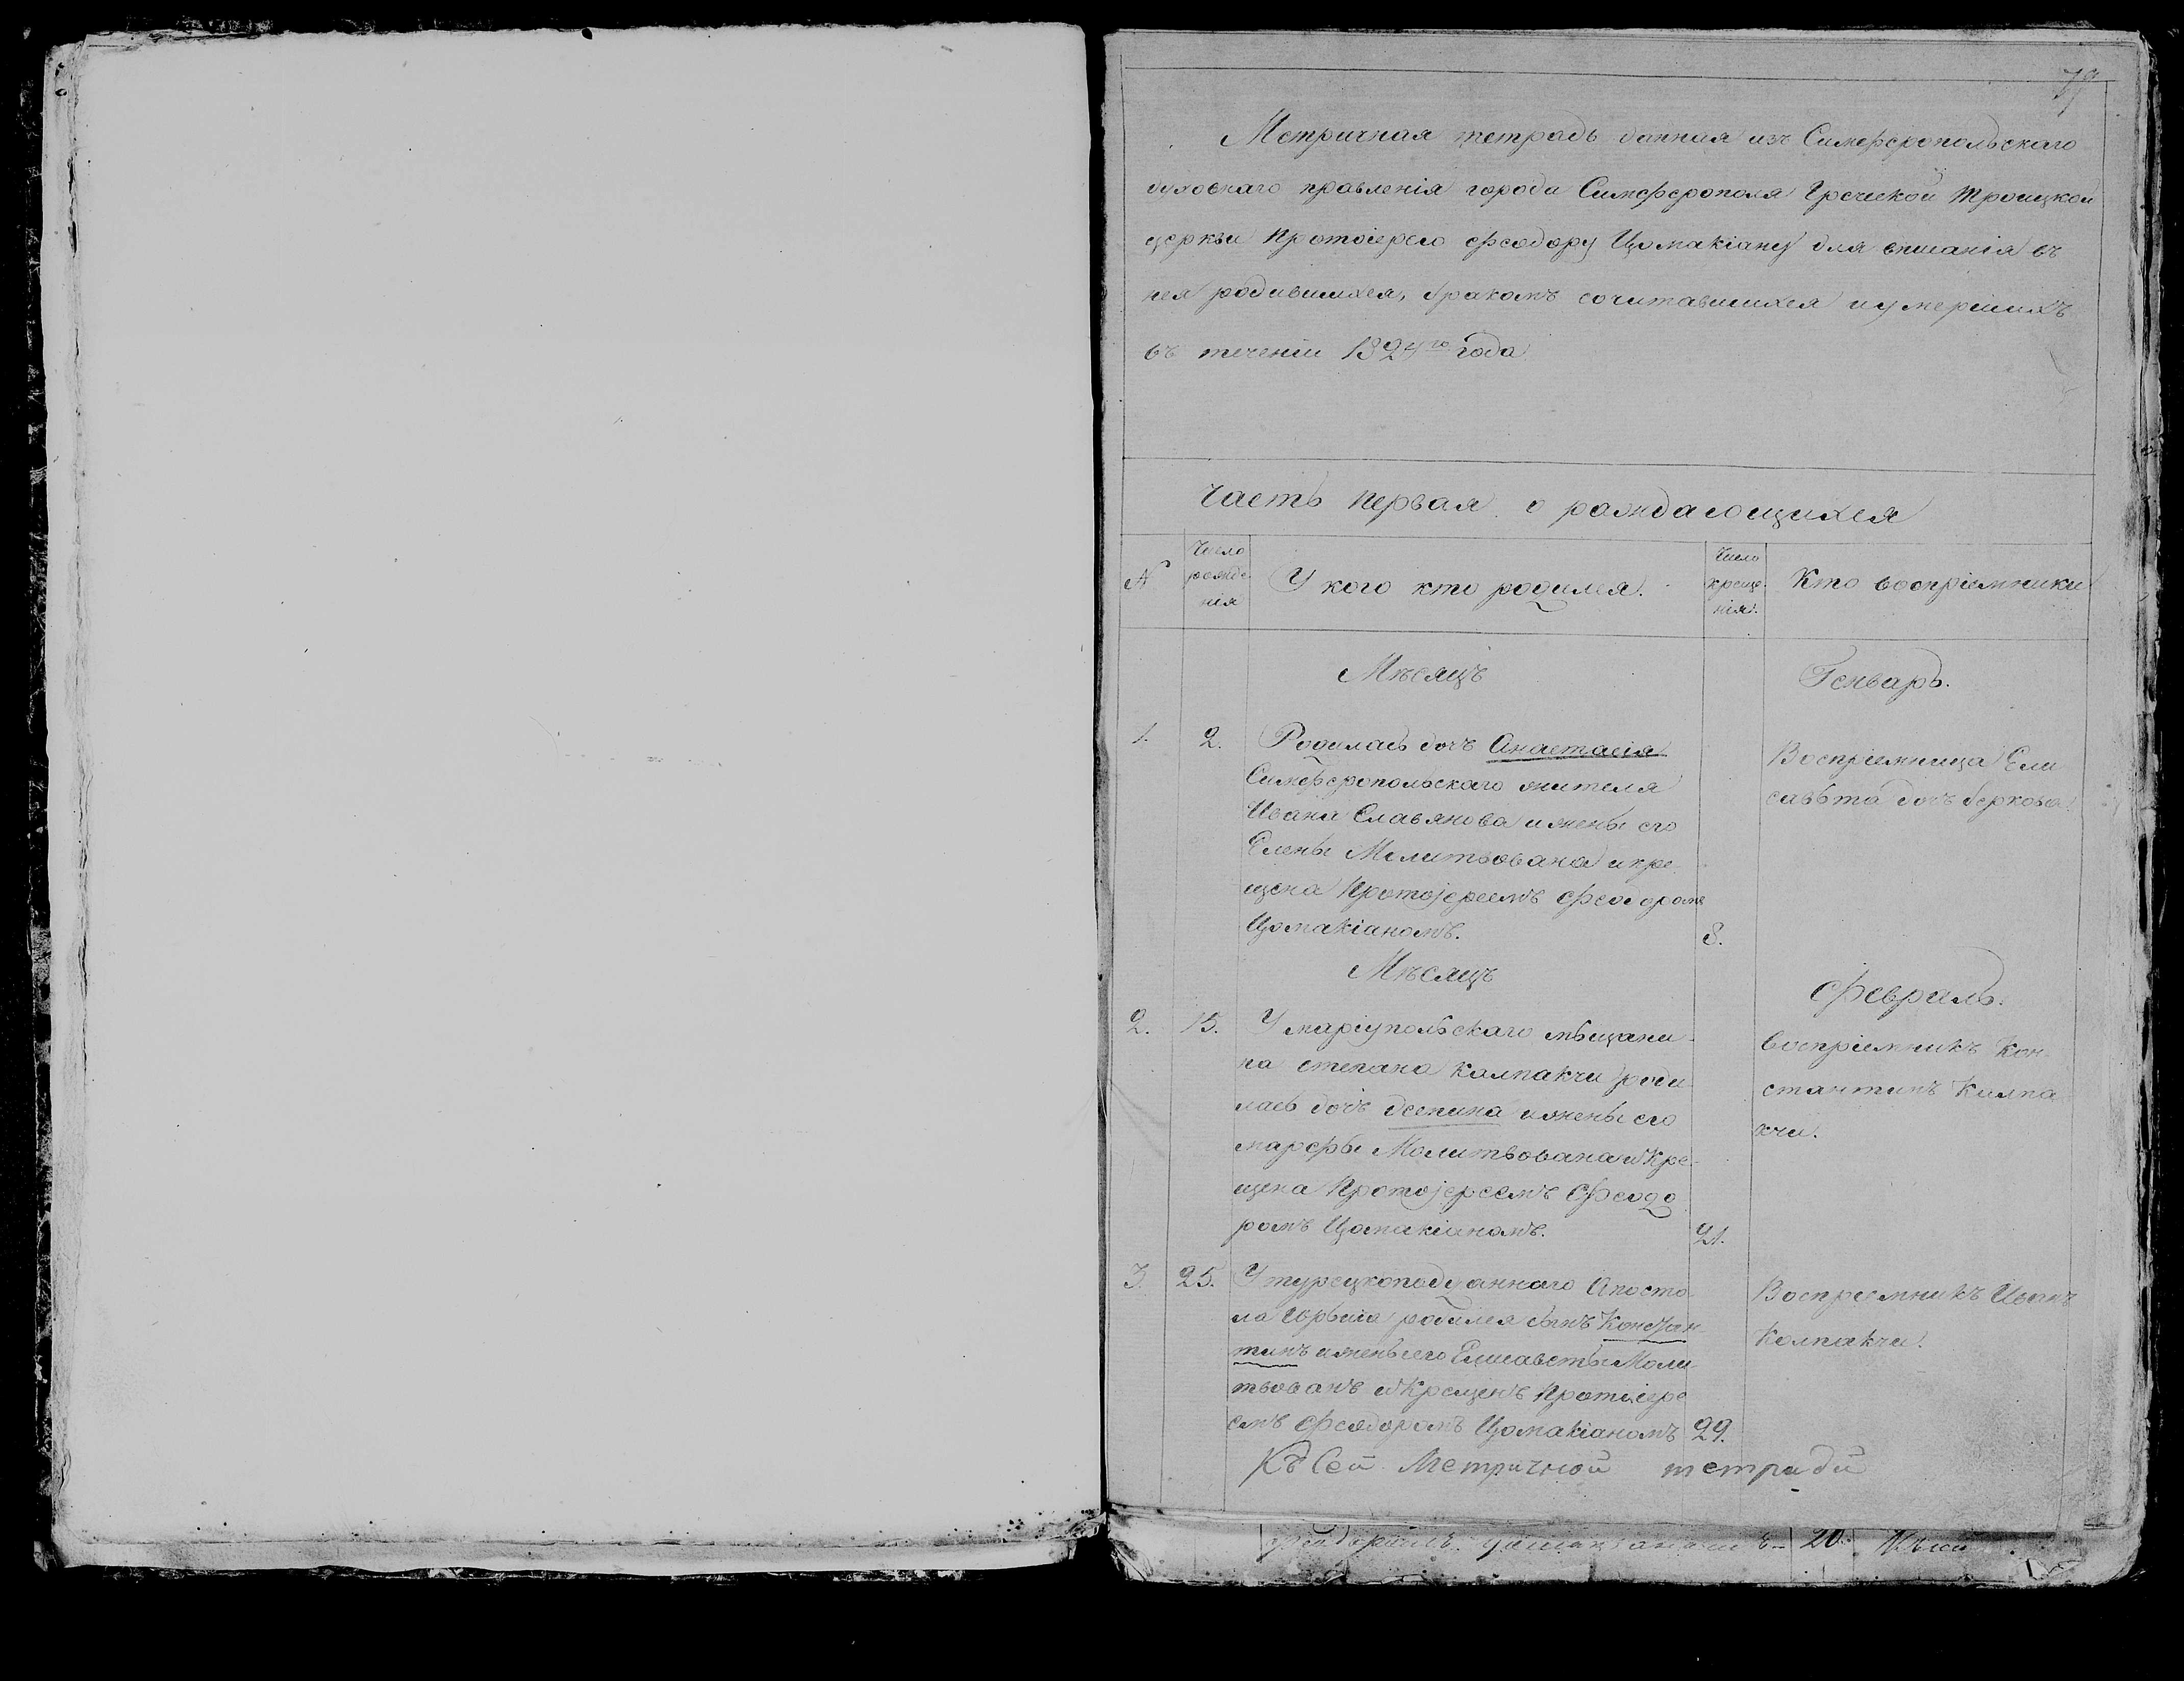 79
Метричная тетрадь данная изъ Симферопольскаго
духовнаго правленія города Симферополя Греческой Троицкой
церкви Протоіерею Феодору Цомакіану для вписанія въ
нея родившихся, бракомъ сочитавшихся и умершихъ
въ теченіи 1824го года
Часть Первая о раждающихся
№
Число рожде нія
У кого кто родился.
Число креще нія.
Кто воспріемники
Мѣсяцъ
Генварь.
1.
2.
Родилась дочь Анастасія
Симферопольскаго жителя
Ивана Славянова и жены его
Елены Молитвована и кре
щена Протоjереемъ Феодоромъ
Цомакіаномъ.
8.
Воспріемница Ели
савѣта дочь
Мѣсяцъ
Февраль.
2.
15.
У маріупольскаго мѣщани-
на степана Калпакчи роди
лась дочь деспина и жены его
марфы Молитвована и Кре-
щена Протоjереемъ Феодо
ромъ Цомакіаномъ.
21.
Воспріемникъ Кон-
стантинъ Калпа
кчи.
3.
25.
У турецкоподданнаго Апосто-
ла родился сынъ Констан-
тинъ и жены его Елисаветы Моли-
твованъ и Крещенъ Протоіере
емъ Феодоромъ Цомакіаномъ
29.
Воспреемникъ Иванъ
Колпакчи.
Къ Сей Метричной тетради
20.